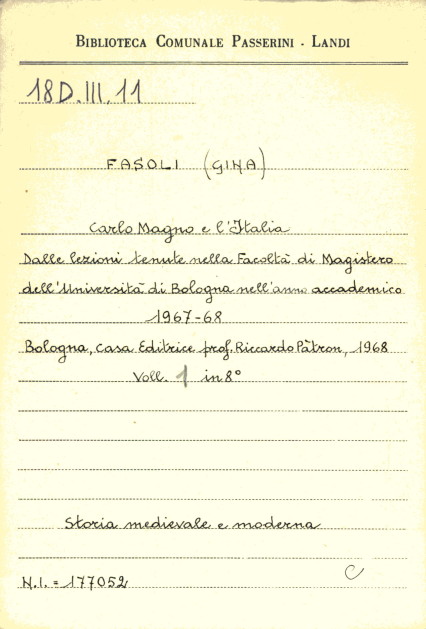 BIBLIOTECA COMUNALE PASSERINI - LANDI
18D.III.11
FASOLI (GINA)
Carlo Magno e l'Italia
Dalle lezioni tenute nella Facoltà di Magistero
dell'Università di Bologna nell'anno accademico
1967-68
Bologna, Casa Editrice prof. Riccardo Pàtron, 1968
Voll. 1 in 8°
Storia medievale e moderna
C
N.I. = 177052